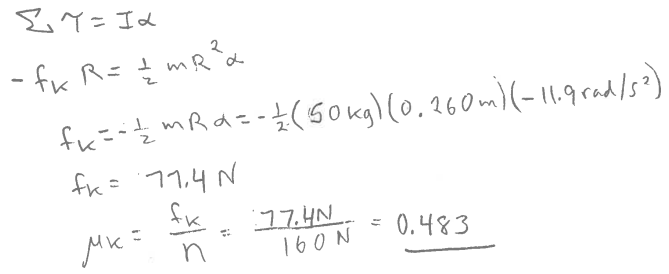 Στ = Iα
-fₖ R = ½ mR²α
fₖ = -½ mRα = -½(50 kg)(0.260m)(-11.9 rad/s²)
fₖ = 77.4 N
μₖ = fₖ/n = 77.4N/160 N = 0.483